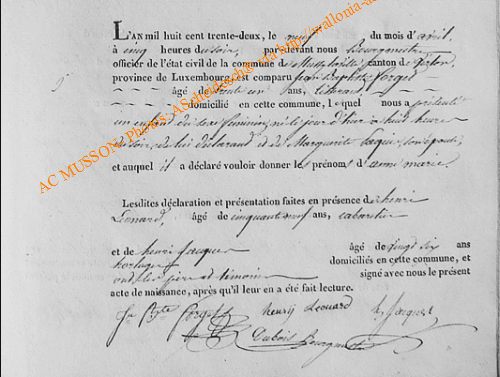 L'AN mil huit cent trente-deux, le neuf du mois d'avril
à cinq heures du soir, par-devant nous Bourgmestre
officier de l'état civil de la commune de canton de
province de Luxembourg, est comparu jean Baptiste forget
âgé de trente un ans,
domicilié en cette commune, lequel nous a présenté
un enfant du sexe féminin, né le jour d'hier à huit heures
du soir, de lui déclarant et de Marguerite Jaques, son épouse
et auquel il a déclaré vouloir donner les prénoms d'anne marie
Lesdites déclaration et présentation faites en présence de henri
Léonard, âgé de cinquante neuf ans, cabaretier
et de henri Jacques âgé de vingt six ans
horloger domiciliés en cette commune, et
ont les père et témoins signé avec nous le présent
acte de naissance, après qu'il leur en a été fait lecture.
Jn Bte forget henry Léonard h Jacques
Dubois Bourgmestre
AC MUSSON, Photos: AScheldeschelde